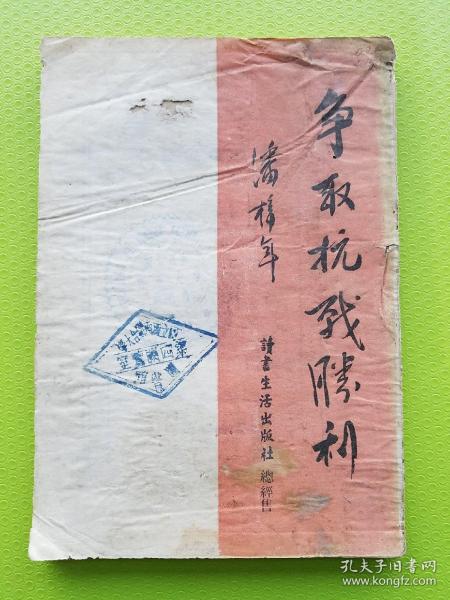 争取抗戰勝利
潘梓年
讀書生活出版社 總經售
孔夫子旧书网
www.kongfz.com